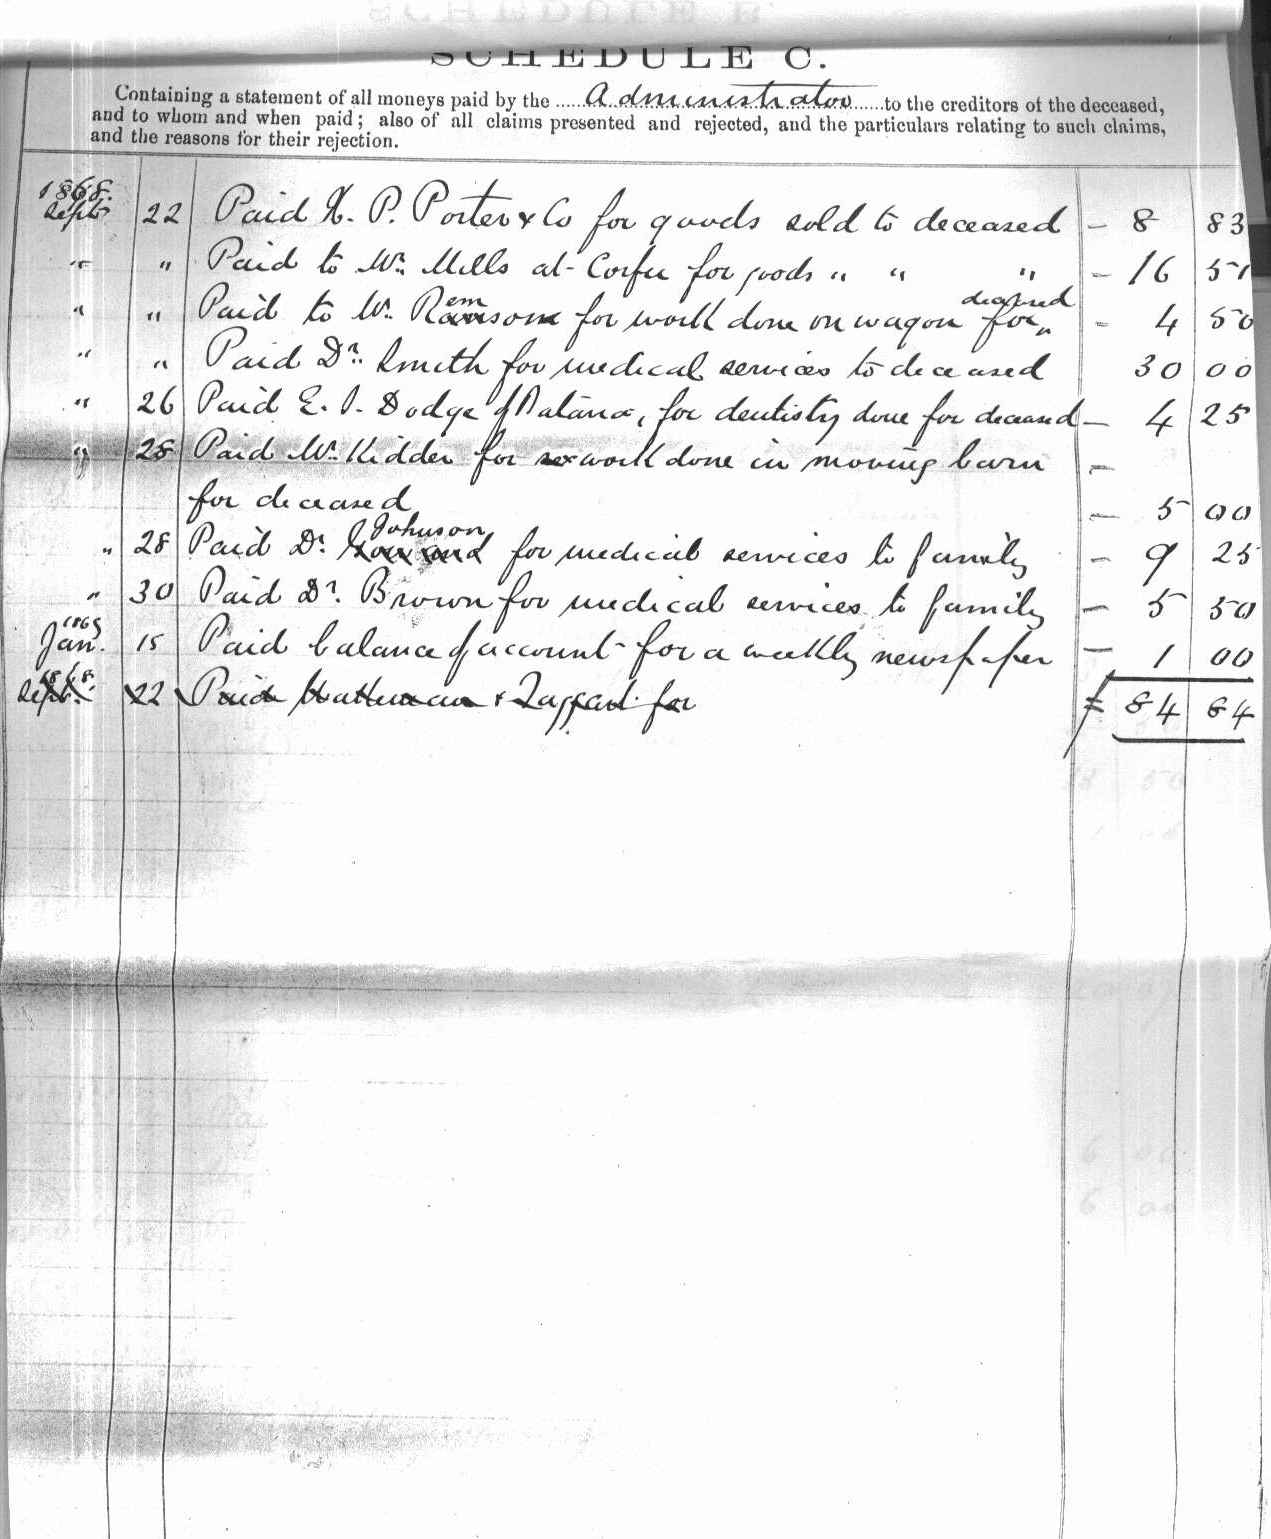 SCHEDULE C.
Containing a statement of all moneys paid by the Administrator to the creditors of the deceased,
and to whom and when paid; also of all claims presented and rejected, and the particulars relating to such claims,
and the reasons for their rejection.
1868.
Sept. 22 Paid H. P. Porter & Co for goods sold to deceased - 8 83
" " Paid to Mr. Mills at Corfu for goods " " " - 16 51
em deceased
" " Paid to Mr. Ransom for work done on wagon for " - 4 50
" " Paid Dr. Smith for medical services to deceased 30 00
" 26 Paid E. I. Dodge of Batavia, for dentistry done for deceased - 4 25
" 28 Paid Mr. Kidder for work done in moving barn -
for deceased - 5 00
Johnson
" 28 Paid Dr. for medical services to family - 9 25
" 30 Paid Dr. Brown for medical services to family - 5 50
Jan. 15 Paid balance of account for a weekly newspaper - 1 00
1868.
Sept. 22 Paid & Taggart for 84 84